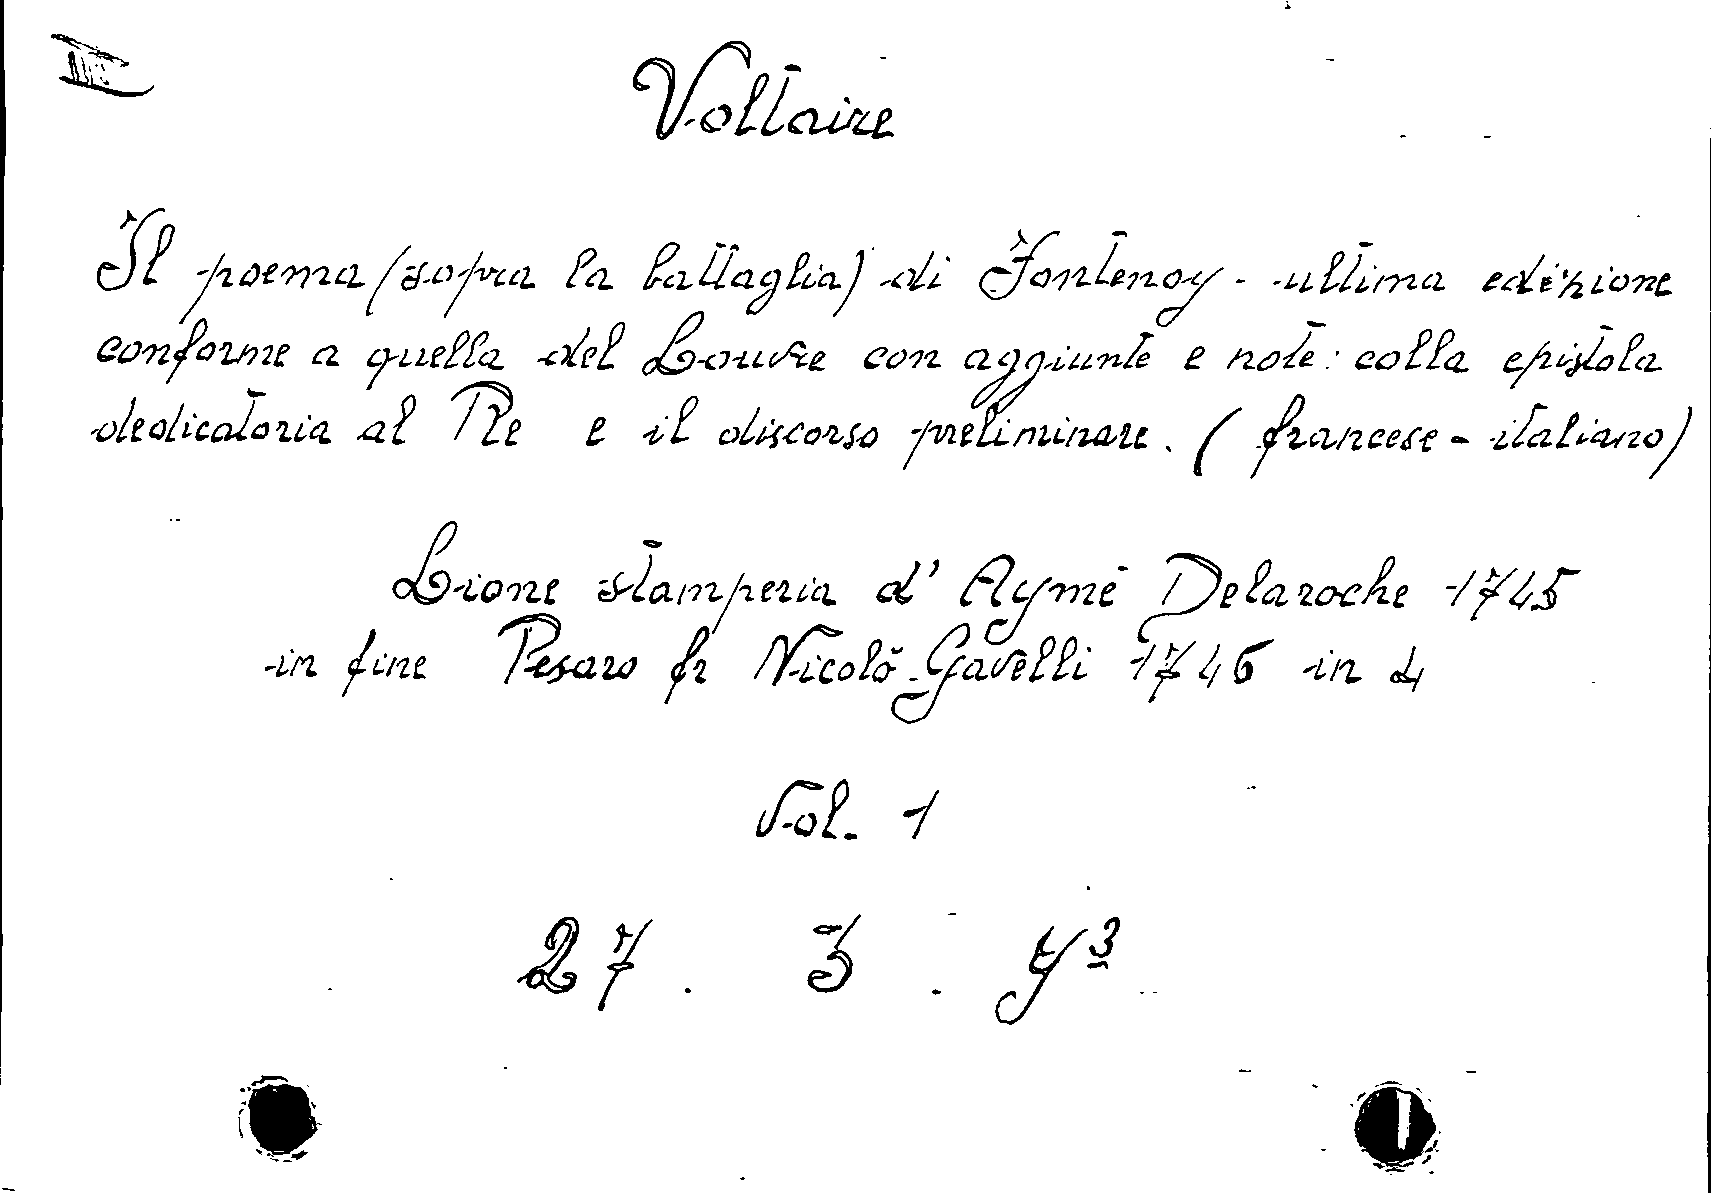 III
Voltaire
Il poema (sopra la battaglia) di Fontenoy - ultima edizione
conforme a quella del Louvre con aggiunte e note: colla epistola
dedicatoria al Re e il discorso preliminare. (francese - italiano)
Lione stamperia d' Aymé Delaroche 1745
in fine Pesaro fr Nicolò Gavelli 1746 in 4
Vol. 1
27 . 3 . Y³